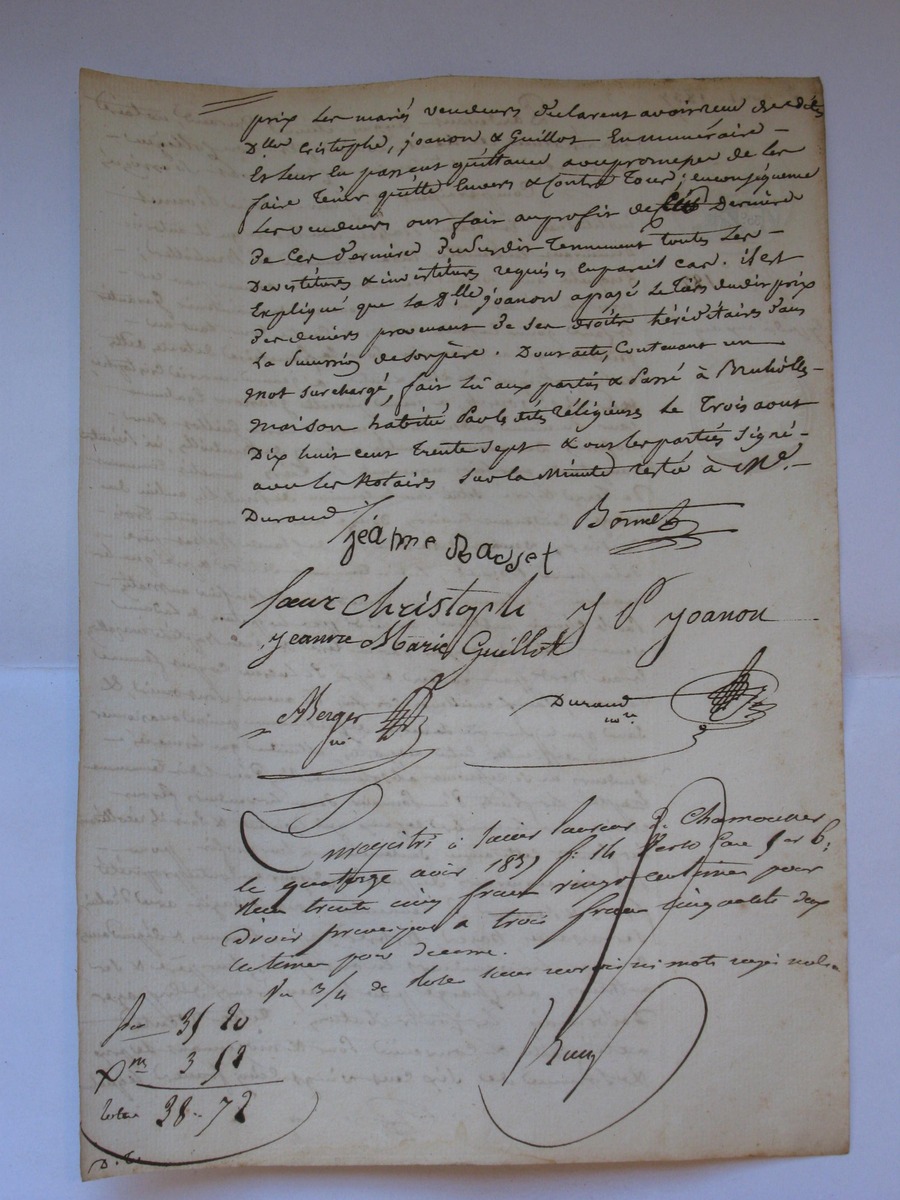 prix les mariés vendeurs déclarent avoir reçu des dites
Dlles Cristophe, joanon & Guillot En numéraire –
Et leur En passent quittance avec promesse de les
faire tenir quitte Envers & Contre Tous ; en conséquence
Les vendeurs ont fait au profit de Dernière
De Ces Dernières Toutes Les –
Devetitures & investitures requises En pareil cas. il est
Expliqué que la Dlle joanon a payé le tiers dudit prix
Des deniers provenant De Ses droits héréditaires dans
La Succession de son père. Dont acte, Contenant un
mot surchargé, fait lû aux parties & Passé à –
maison habitée Par les dites Réligieuses Le Trois aout
Dix huit cent Trente Sept & ont les parties Signé –
avec les Notaires Sur la Minute restée à Me. –
Durand Bonnet
jéanne
Sœur Christophe J P joanon
jeanne Marie Guillot
Berger nre Durand nre
Enregistré à Saint Laurent d. Chamousset
le quatorze août 1837 f. 14 Verso Case 5 et 6.
Reçu trente cinq francs vingt centimes pour
Droit principal & trois francs cinquante deux
Centimes pour décime.
Vu 3/4 de Rôle sans renvois ni mots rayés nuls
35 20
Xme 3 52
total 38-72
D. E.